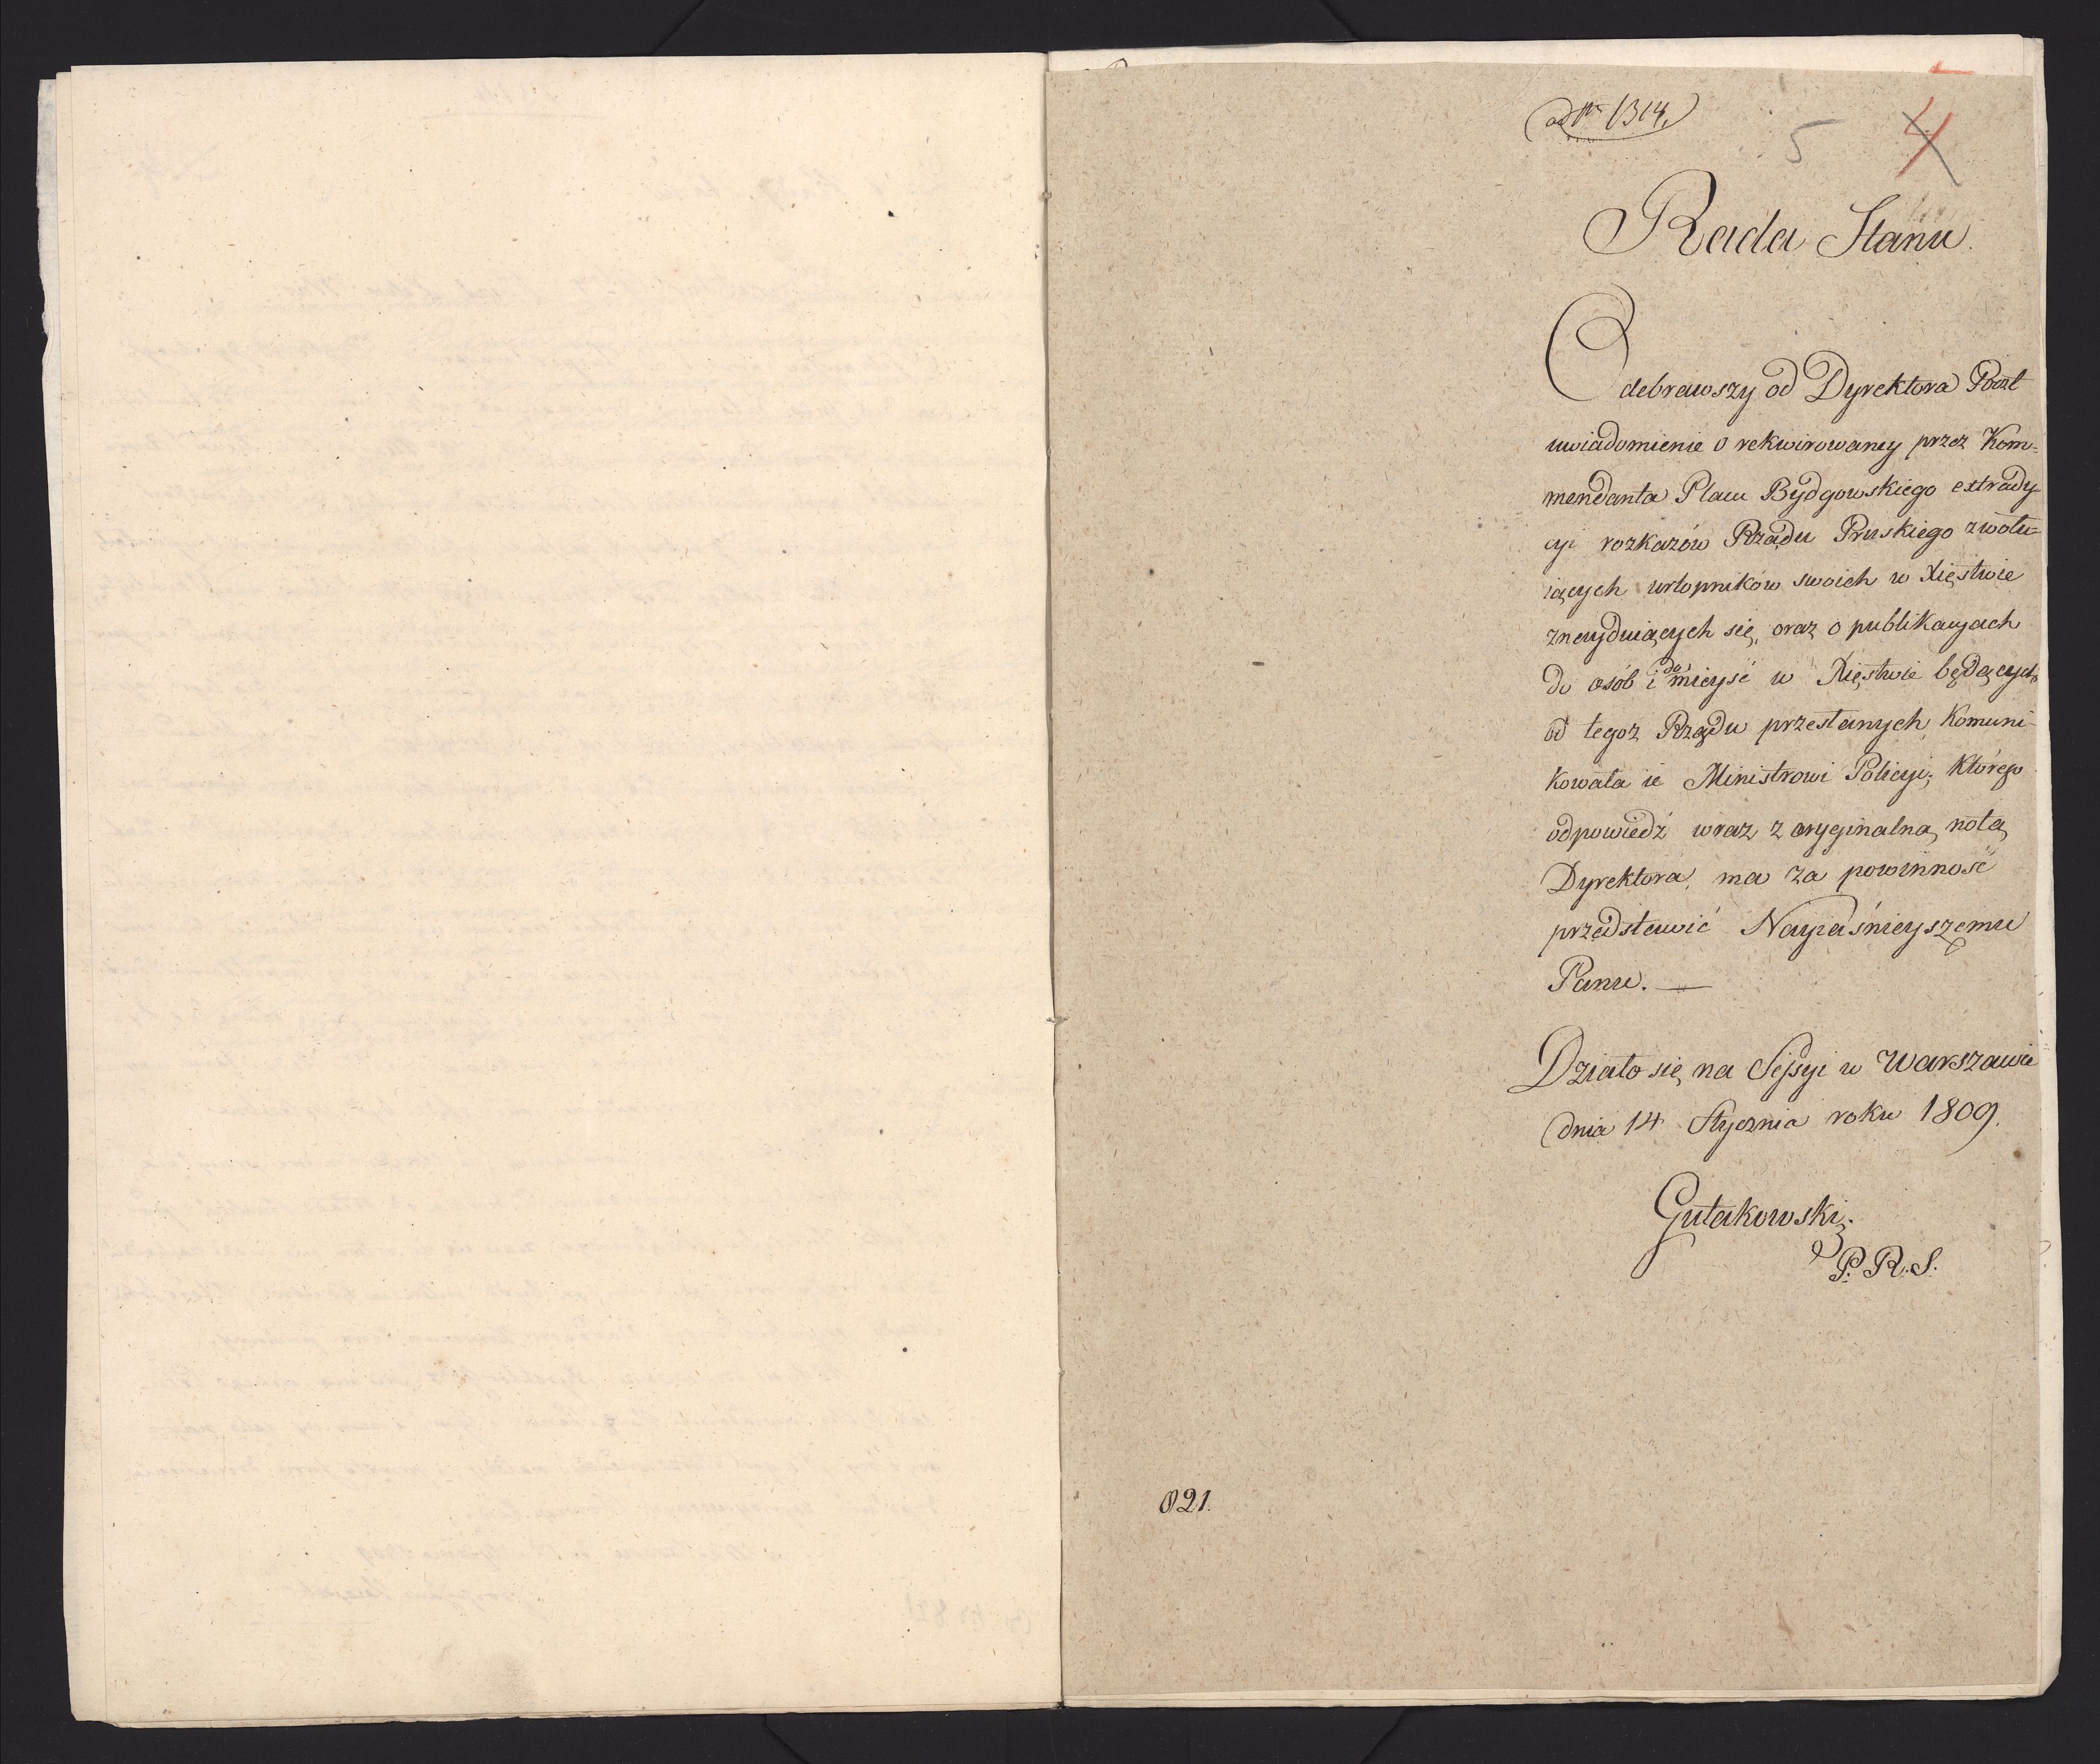 ad Nr 1314.
5 4
Rada Stanu.
Odebrawszy od Dyrektora Poczt
uwiadomienie o rekwirowaney przez Kom=
mendanta Placu Bydgowskiego extrady-
cyi rozkazów Rządu Pruskiego zwołu=
iących urlopników swoich w Xięstwie
znayduiących się, oraz o publikacyach
do osób i do mieysć w Xięstwie będących
od tegoż Rządu przesłanych, Komuni-
kowała ie Ministrowi Policyi; którego
odpowiedź wraz z oryginalną notą
Dyrektora, ma za powinność
przedstawić Nayiaśnieyszemu
Panu. —
Działo się na Sessyi w Warszawie
dnia 14 Stycznia roku 1809.
Gutakowski
P. R. S.
821.